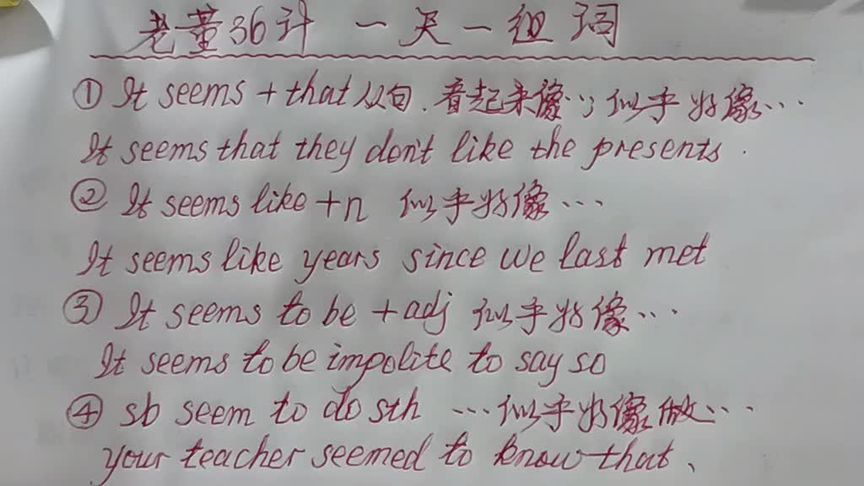 老董36计 一天一组词
① It seems + that从句. 看起来像…;似乎好像…
It seems that they don't like the presents.
② It seems like +n 似乎好像…
It seems like years since we last met
③ It seems to be +adj 似乎好像…
It seems to be impolite to say so
④ sb seem to do sth …似乎好像做…
your teacher seemed to know that、